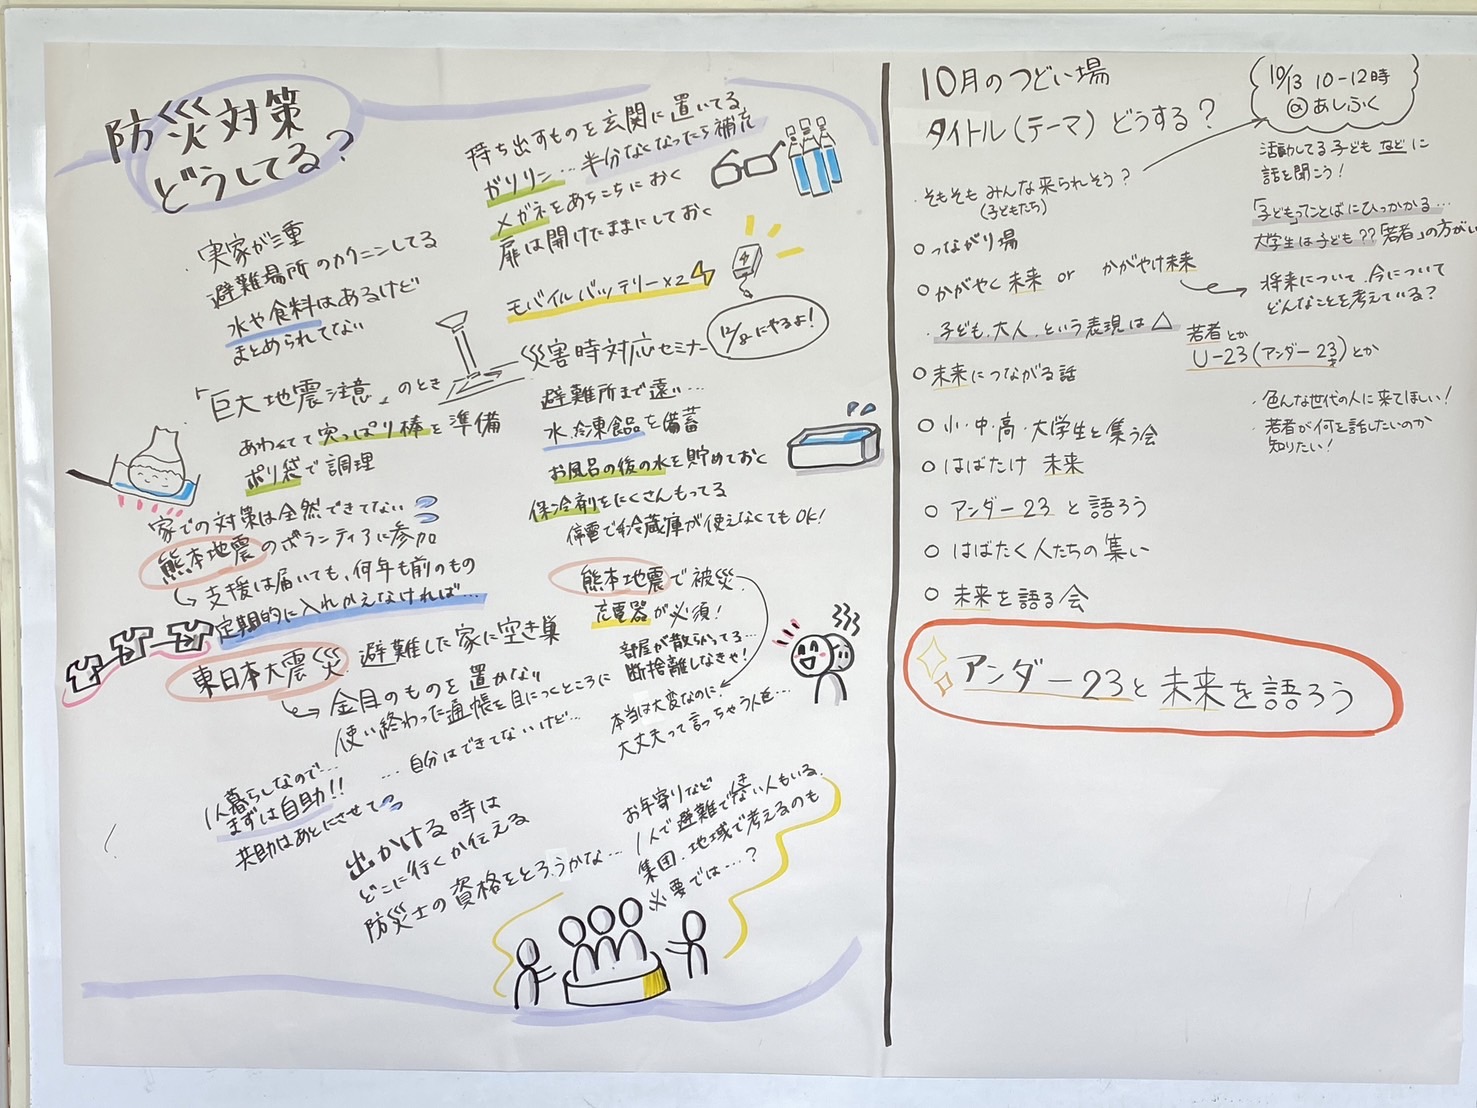 防災対策
どうしてる？
・実家が三重
避難場所のカクニンしてる
水や食料はあるけど
まとめられてない
「巨大地震注意」のとき
あわてて突っぱり棒を準備
ポリ袋で調理
家での対策は全然できてない
熊本地震のボランティアに参加
支援は届いても、何年も前のもの
定期的に入れかえなければ…
東日本大震災 避難した家に空き巣
金目のものを置かない
使い終わった通帳を目につくところに
…自分はできてないけど…
1人暮らしなので…
まずは自助!!
共助はあとにさせて
出かける時は
どこに行くか伝える
防災士の資格をとろうかな…
持ち出すものを玄関に置いてる
ガソリン…半分なくなったら補充
メガネをあちこちにおく
扉は開けたままにしておく
モバイルバッテリー×2
災害時対応セミナー
12/8にやるよ！
避難所まで遠い…
水、冷凍食品を備蓄
お風呂の後の水を貯めておく
保冷剤をたくさんもってる
停電で冷蔵庫が使えなくてもOK！
熊本地震で被災
充電器が必須！
部屋が散らかってる…
断捨離しなきゃ！
本当は大変なのに
大丈夫って言っちゃう人も…
お年寄りなど
1人で避難できない人もいる
集団・地域で考えるのも
必要では…？
10月のつどい場
タイトル（テーマ）どうする？
10/13 10-12時
@あしふく
・そもそも みんな来られそう？
（子どもたち）
活動してる子どもなどに
話を聞こう！
○つながり場
「子ども」ってことばにひっかかる…
大学生は子ども??「若者」の方がい
○かがやく未来 or かがやけ未来
将来について、今について
どんなことを考えている？
・子ども、大人、という表現は△
若者とか
U-23（アンダー23）とか
○未来につながる話
・色んな世代の人に来てほしい！
・若者が何を話したいのか
知りたい！
○小・中・高・大学生と集う会
○はばたけ 未来
○アンダー23と語ろう
○はばたく人たちの集い
○未来を語る会
アンダー23と未来を語ろう